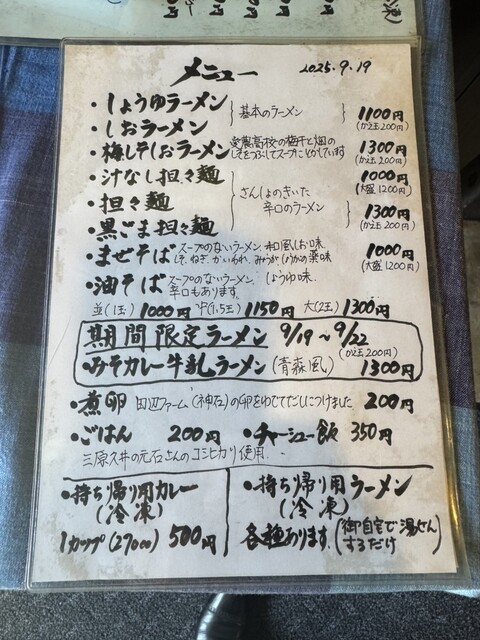 メニュー 2025.9.19
・しょうゆラーメン
・しおラーメン
基本のラーメン
1100円
(かえ玉200円)
・梅しそしおラーメン
高校の梅干と畑の
しそをつぶしてスープにとかしています
1300円
(かえ玉200円)
・汁なし担々麺
1000円
(大盛1200円)
・担々麺
・黒ごま担々麺
さんしょのきいた
辛口のラーメン
1300円
(かえ玉200円)
・まぜそば
スープのないラーメン 和風しお味
しそ、ねぎ、かいわれ、みょうがの薬味
1000円
(大盛1200円)
・油そば
スープのないラーメン しょうゆ味
辛口もあります
並(1玉) 1000円 中(1.5玉) 1150円 大(2玉) 1300円
期間限定ラーメン 9/19~9/22
(かえ玉200円)
・みそカレー牛乳ラーメン (青森風) 1300円
・煮卵 田辺ファーム(神石)の卵をゆでてだしにつけました 200円
・ごはん 200円 ・チャーシュー飯 350円
三原久井の元石さんのコシヒカリ使用
・持ち帰り用カレー
(冷凍)
1カップ(270cc) 500円
・持ち帰り用ラーメン
(冷凍)
各種あります (御自宅で湯せん
するだけ)